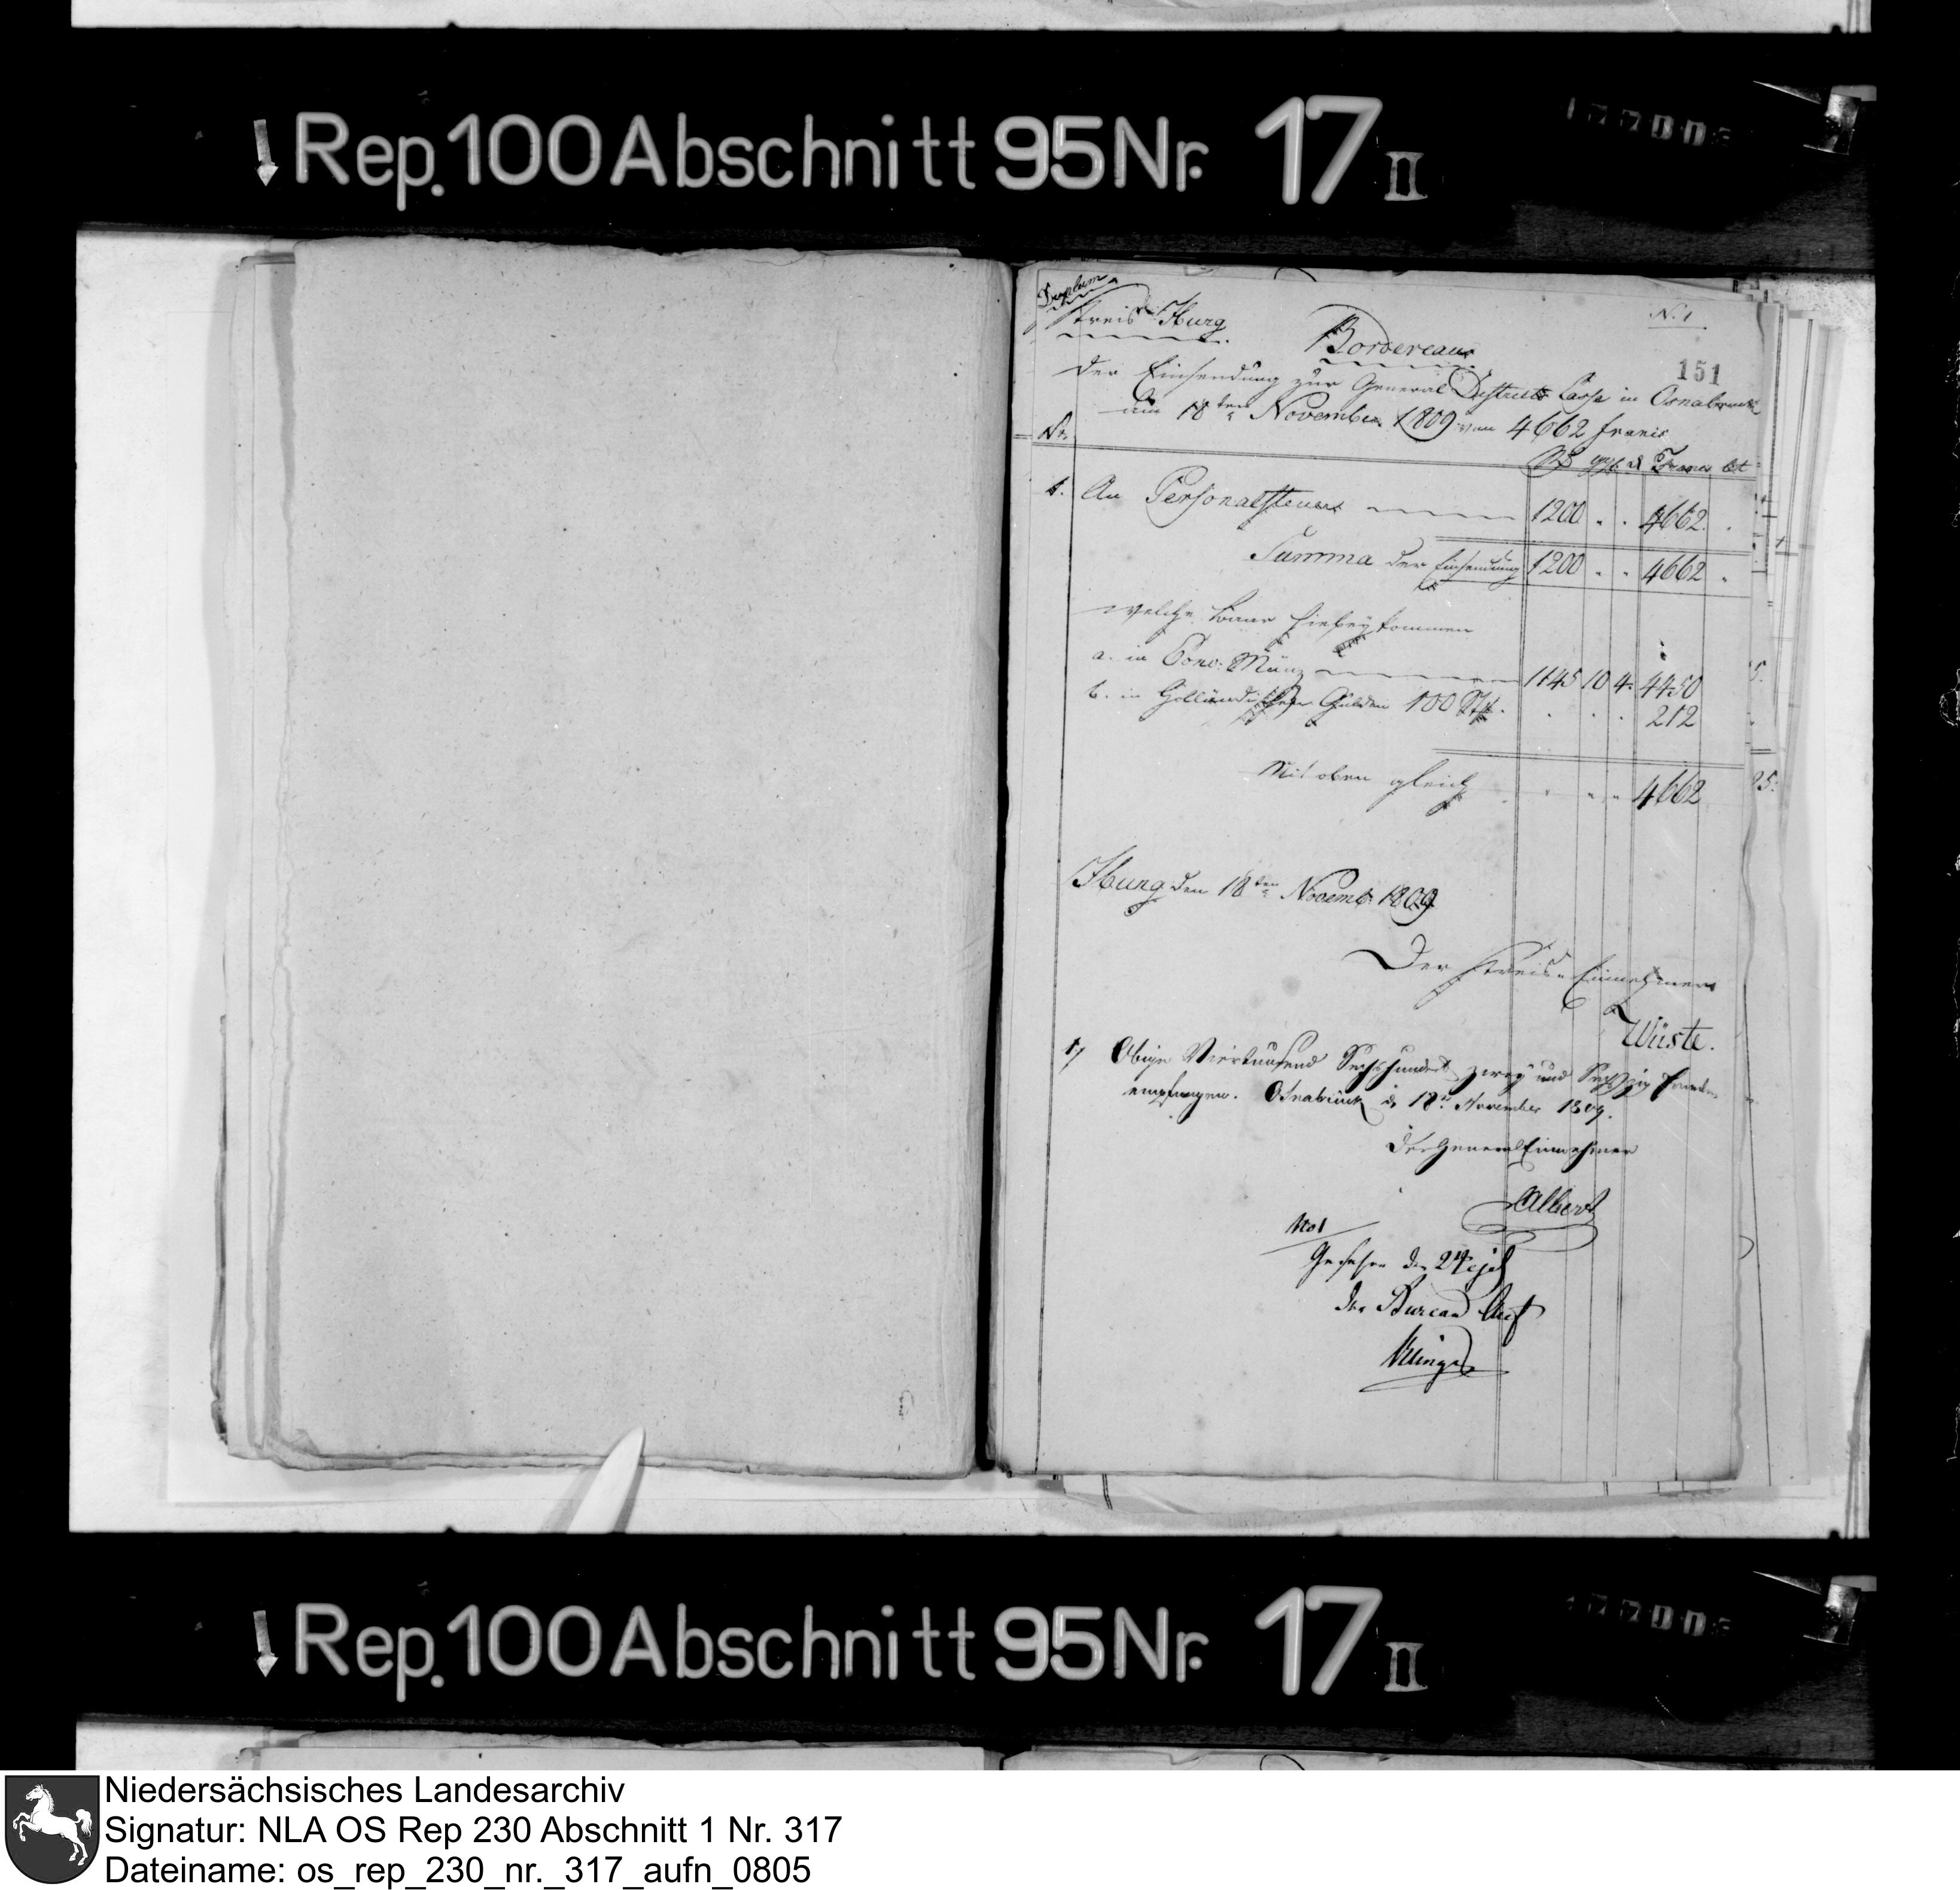 Rep. 100 Abschnitt 95 Nr. 17 II
Duplum
Kreis Iburg
N. 1
Bordereau
151
der Einsendung zur General Districts Casse in Osnabrück
am 18ten November 1809 von 4662 francs
No. Rt ggl. d Francs Ct
1. An Personalsteuer 1200 . . 4662 .
Summa der Einsendung 1200 . . 4662 .
welche baar hiebey kommen
a. in Conv: Münz 1145 10 4. 4450
b. in Holländischen Gulden 100 Stk. . . . 212
Mit oben gleich . . . 4662
Iburg den 18ten Novemb. 1809
Der Kreis-Einnehmer
Wüste.
Obige Viertausend Sechshundert zwey und Sechzig Francs
empfangen. Osnabrück d. 18n November 1809.
Der General Einnehmer
Albers
Gesehen den 24 ejd
Der Bureau Chef
Rep. 100 Abschnitt 95 Nr. 17 II
Niedersächsisches Landesarchiv
Signatur: NLA OS Rep 230 Abschnitt 1 Nr. 317
Dateiname: os_rep_230_nr._317_aufn_0805